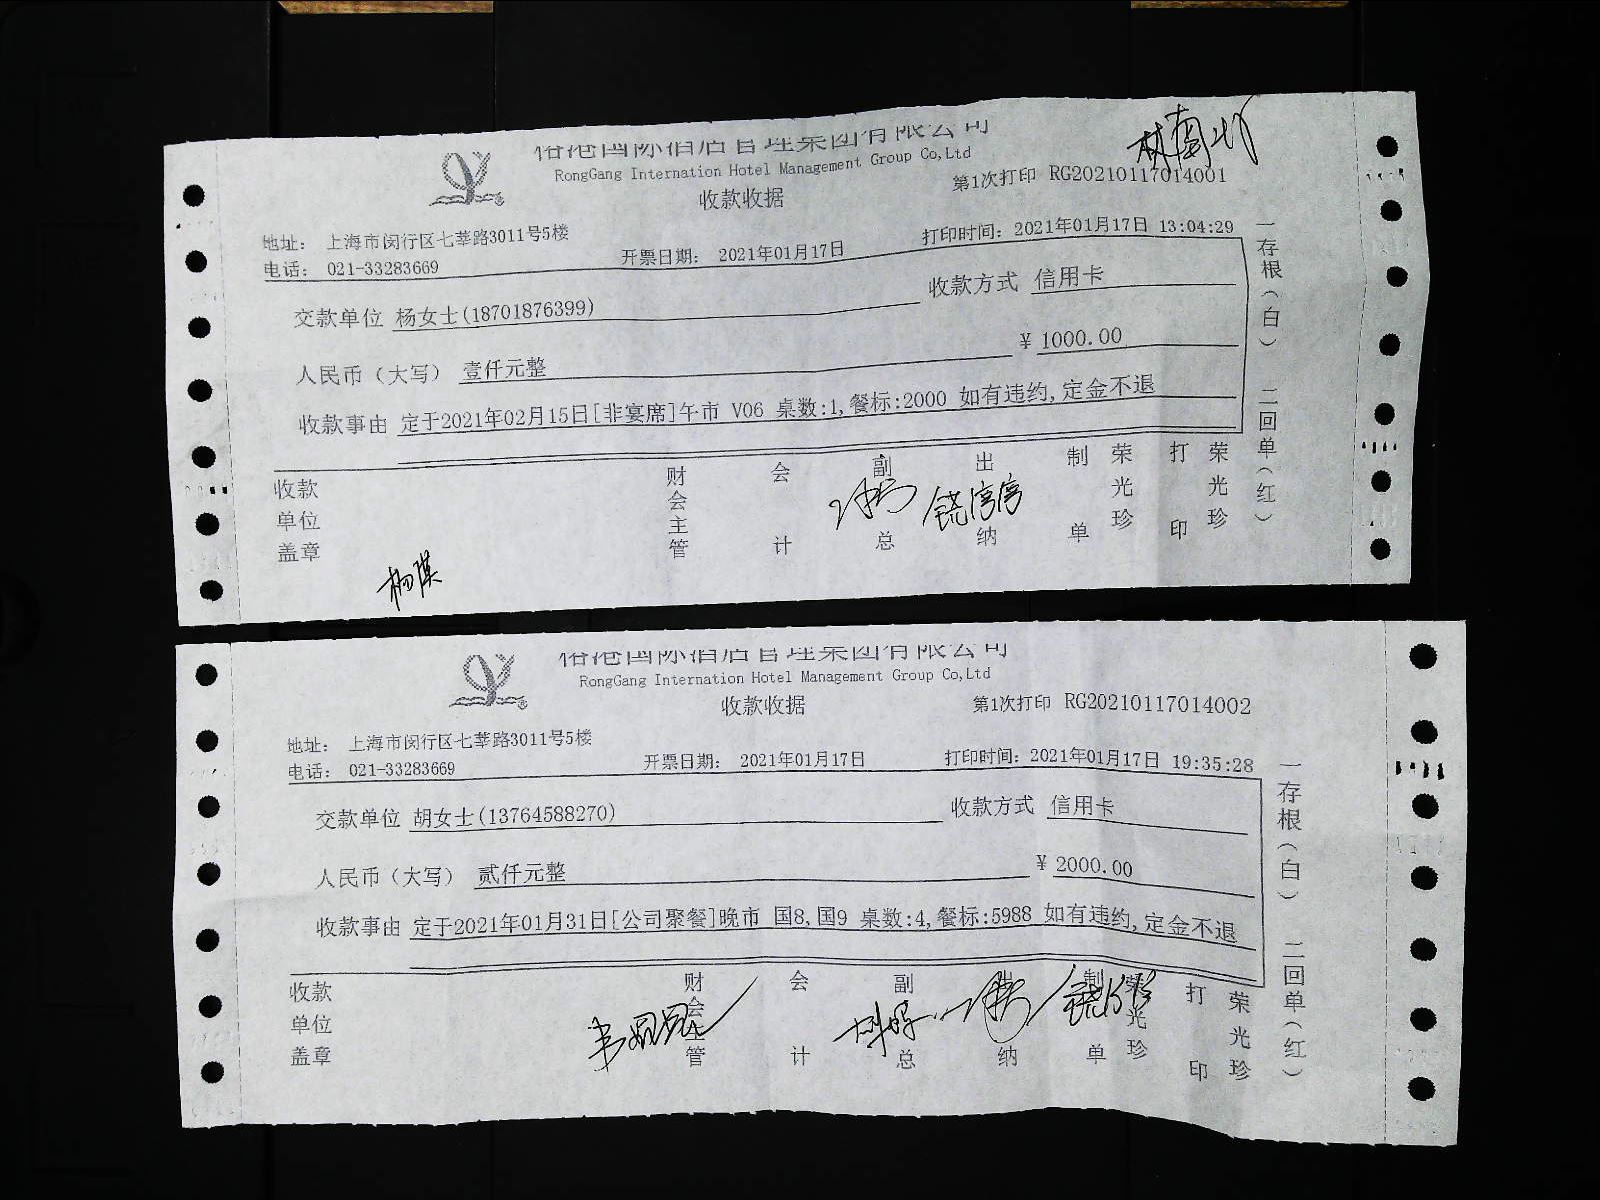 RongGang Internation Hotel Management Group Co,Ltd
收款收据
第1次打印 RG20210117014001
地址： 上海市闵行区七莘路3011号5楼
电话： 021-33283669
开票日期： 2021年01月17日
打印时间：2021年01月17日 13:04:29
交款单位 杨女士(18701876399)
收款方式 信用卡
人民币（大写） 壹仟元整
¥ 1000.00
收款事由 定于2021年02月15日[非宴席]午市 V06 桌数:1,餐标:2000 如有违约,定金不退
收款单位盖章
财会主管
会计
副总
出纳
制单
荣光珍
打印
荣光珍
一存根（白） 二回单（红）
RongGang Internation Hotel Management Group Co,Ltd
收款收据
第1次打印 RG20210117014002
地址： 上海市闵行区七莘路3011号5楼
电话： 021-33283669
开票日期： 2021年01月17日
打印时间：2021年01月17日 19:35:28
交款单位 胡女士(13764588270)
收款方式 信用卡
人民币（大写） 贰仟元整
¥ 2000.00
收款事由 定于2021年01月31日[公司聚餐]晚市 国8,国9 桌数:4,餐标:5988 如有违约,定金不退
收款单位盖章
财会主管
会计
副总
出纳
制单
荣光珍
打印
荣光珍
一存根（白） 二回单（红）